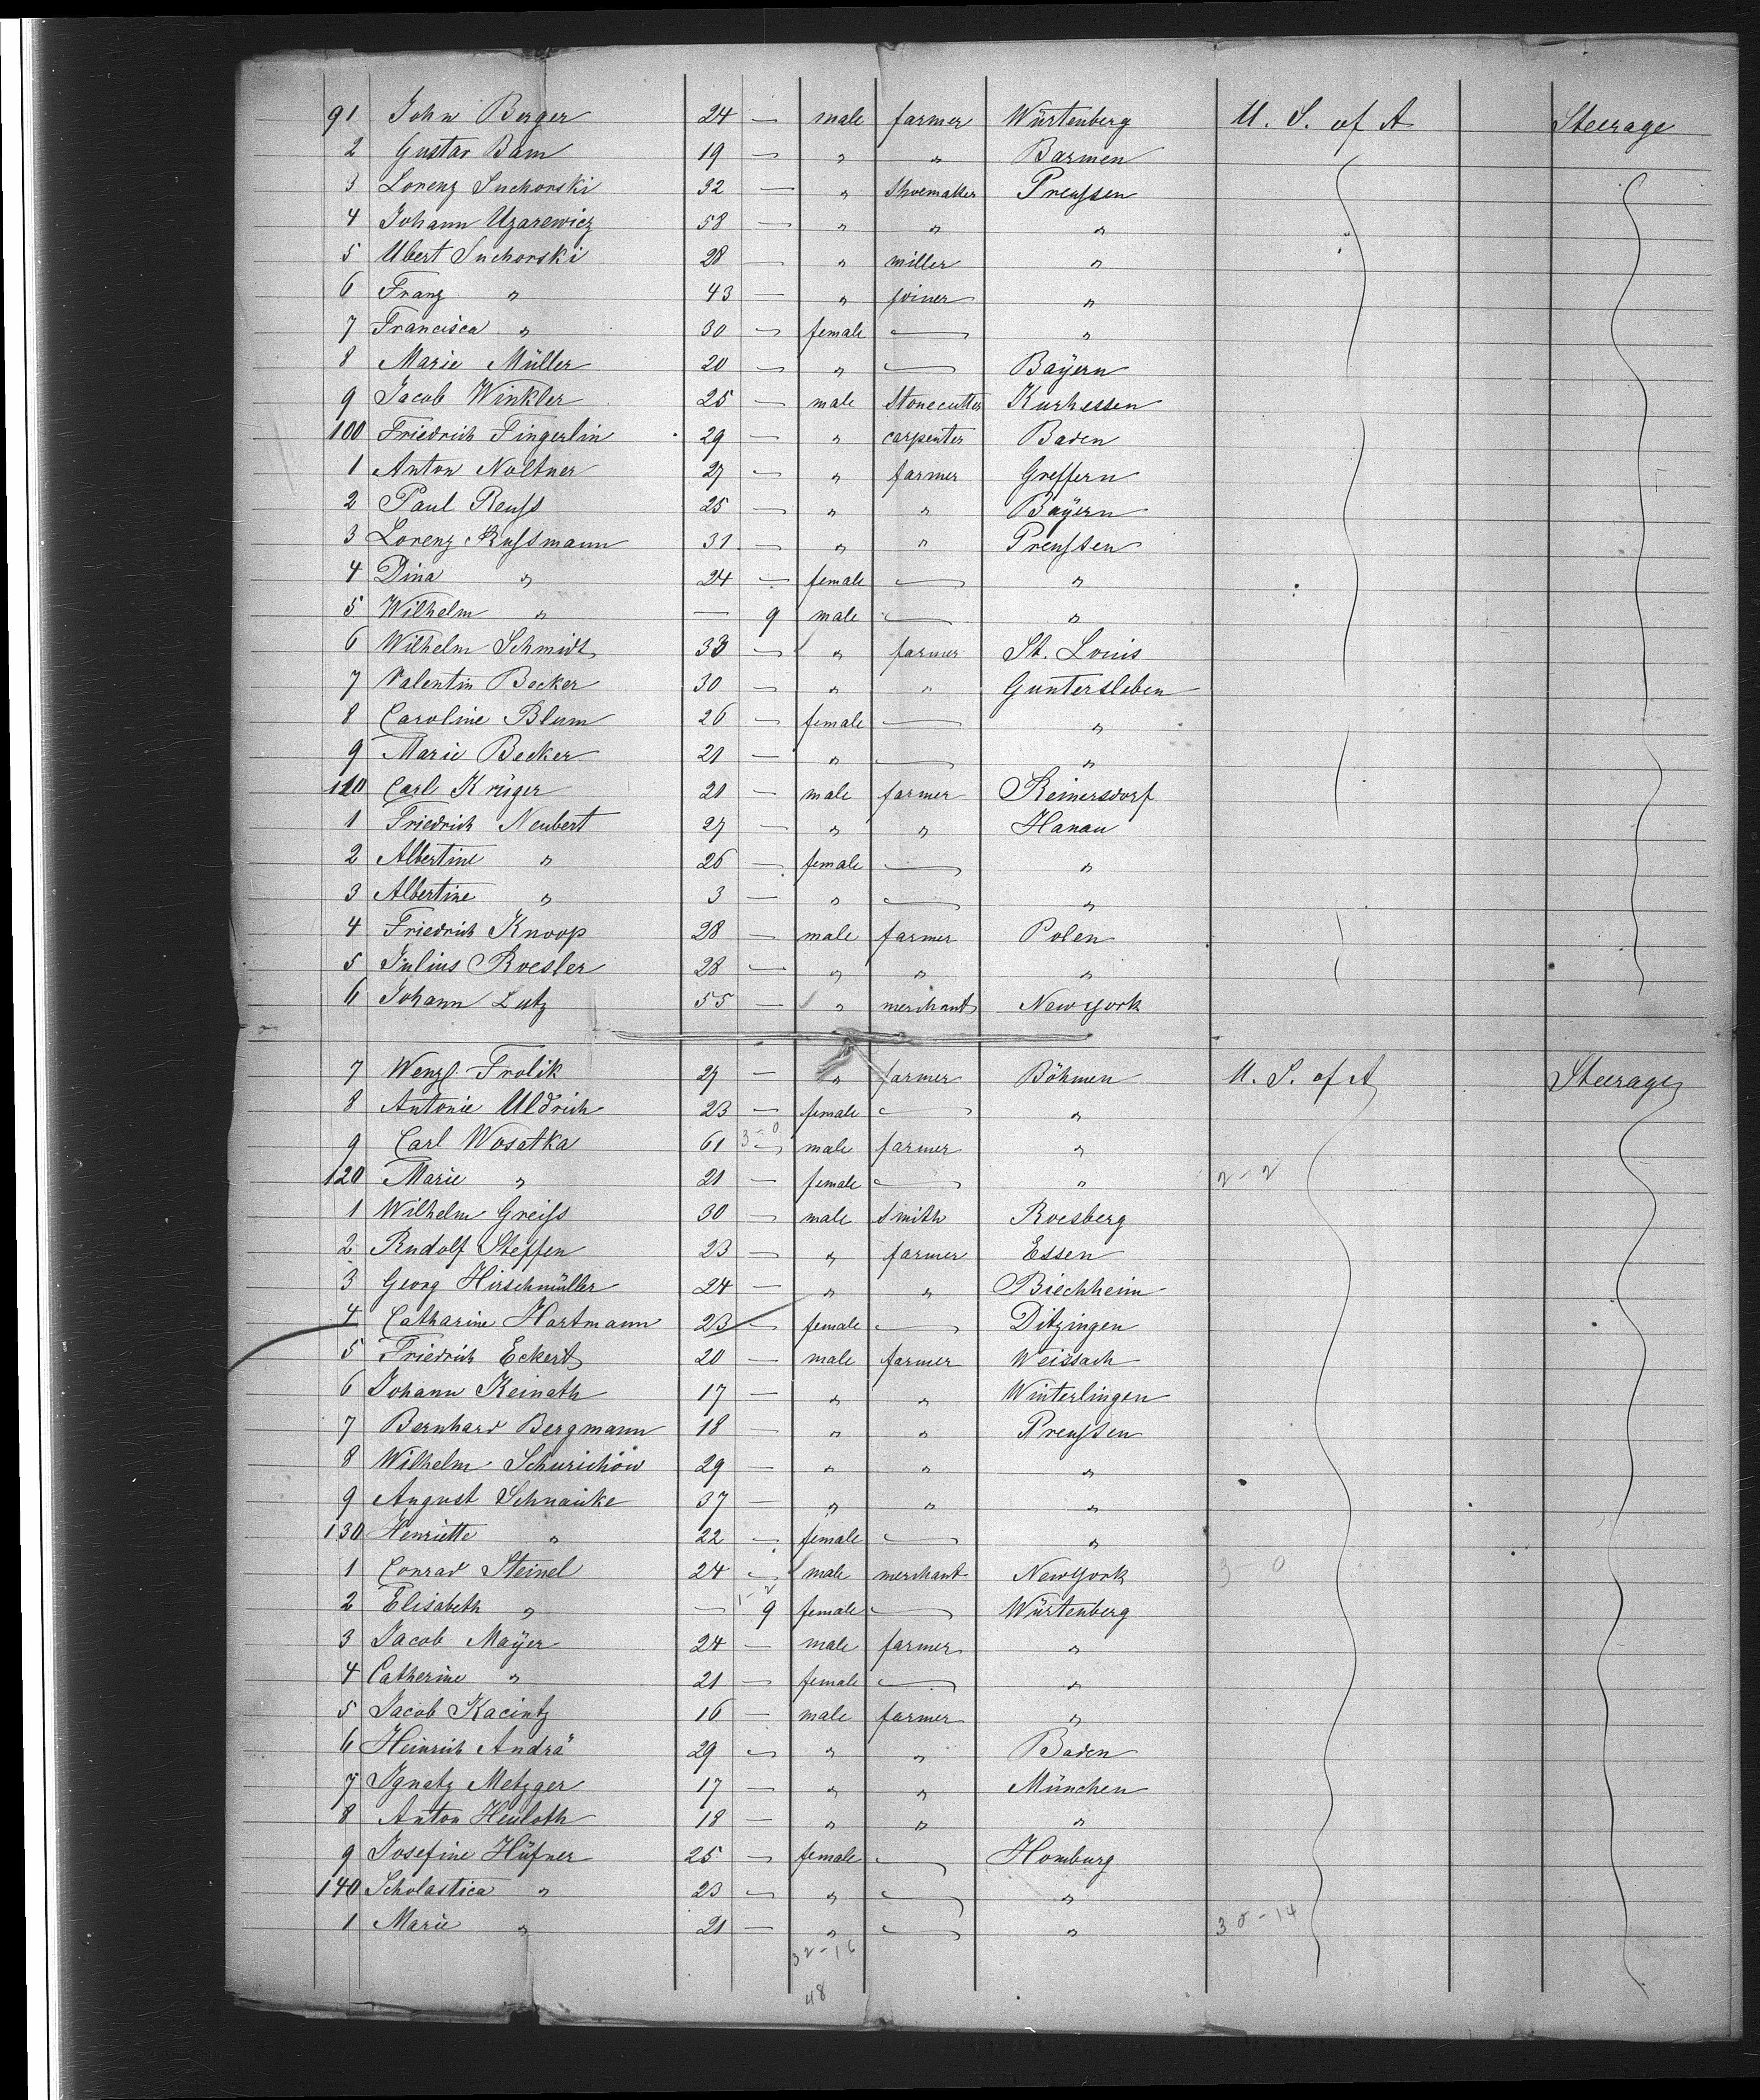 91 John Berger 24 — male farmer Würtenberg U. S. of A Steerage
2 Gustav Bam 19 — " " Barmen
3 Lorenz Suchorski 32 — " Shoemaker Preußen
4 Johann Uzarewicz 58 — " " "
5 Ubert Suchorski 28 — " miller "
6 Franz " 43 — " joiner "
7 Francisca " 30 — female — "
8 Marie Müller 20 — " — Bayern
9 Jacob Winkler 25 — male Stonecutter Kurhessen
100 Friedrich Fingerlin 29 — " carpenter Baden
1 Anton Noltner 27 — " farmer Greffern
2 Paul Reuß 25 — " " Bayern
3 Lorenz Rußmann 31 — " " Preußen
4 Dina " 24 — female — "
5 Wilhelm " — 9 male — "
6 Wilhelm Schmidt 33 — " farmer St. Louis
7 Valentin Becker 30 — " " Guntersleben
8 Caroline Blum 26 — female — "
9 Marie Becker 21 — " — "
110 Carl Krüger 21 — male farmer Reinersdorf
1 Friedrich Neubert 27 — " " Hanau
2 Albertine " 26 — female — "
3 Albertine " 3 — " — "
4 Friedrich Knoop 28 — male farmer Polen
5 Julius Roesler 28 — " " "
6 Johann Lutz 55 — " merchant New York
7 Wenzl Frolik 27 — " farmer Böhmen U. S. of A Steerage
8 Antonie Uldrich 23 — female — "
9 Carl Wosatka 61 3-0 — male farmer "
120 Marie " 21 — female — " 2-2
1 Wilhelm Greiß 30 — male Smith Roesberg
2 Rudolf Steffen 23 — " farmer Essen
3 Georg Hirschmüller 24 — " " Biechheim
4 Catharine Hartmann 23 — female — Ditzingen
5 Friedrich Eckert 20 — male farmer Weissach
6 Johann Keinath 17 — " " Winterlingen
7 Bernhard Bergmann 18 — " " Preußen
8 Wilhelm Schurichöw 29 — " " "
9 August Schnauke 37 — " " "
130 Henriette " 22 — female — "
1 Conrad Steinel 24 — male merchant New York 3-0
2 Elisabeth " — 1-2 9 female — Würtenberg
3 Jacob Mayer 24 — male farmer "
4 Catherine " 21 — female — "
5 Jacob Kacintz 16 — male farmer "
6 Heinrich Andrä 29 — " " Baden
7 Ignatz Metzger 17 — " " München
8 Anton Heuloth 18 — " " "
9 Josefine Hüfner 25 — female — Homburg
140 Scholastica " 23 — " — "
1 Marie " 21 — " — " 30-14
32-16
48